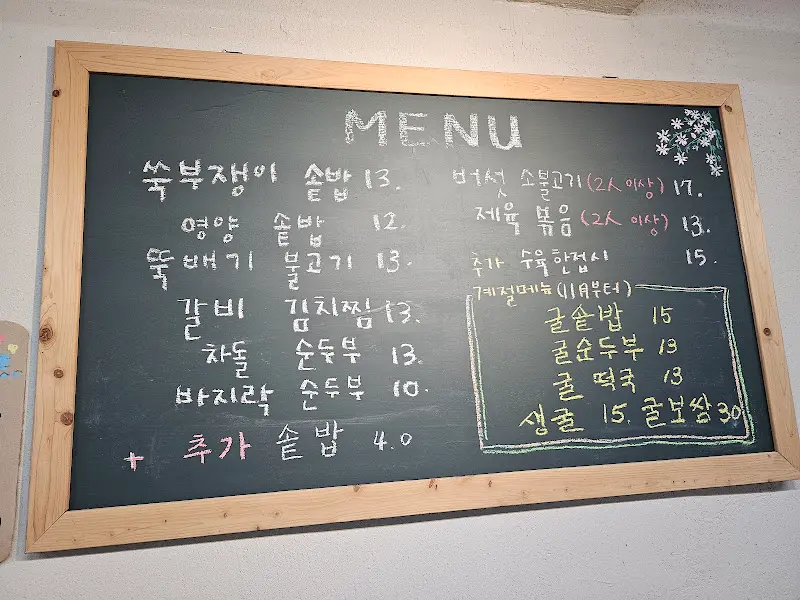 MENU
쑥부쟁이 솥밥 13.
영양 솥밥 12.
뚝배기 불고기 13.
갈비 김치찜 13.
차돌 순두부 13.
바지락 순두부 10.
+ 추가 솥밥 4.0
버섯 소불고기 (2人 이상) 17.
제육 볶음 (2人 이상) 13.
추가 수육 한접시 15.
계절메뉴 (11月부터)
굴솥밥 15
굴순두부 13
굴 떡국 13
생굴 15. 굴보쌈 30